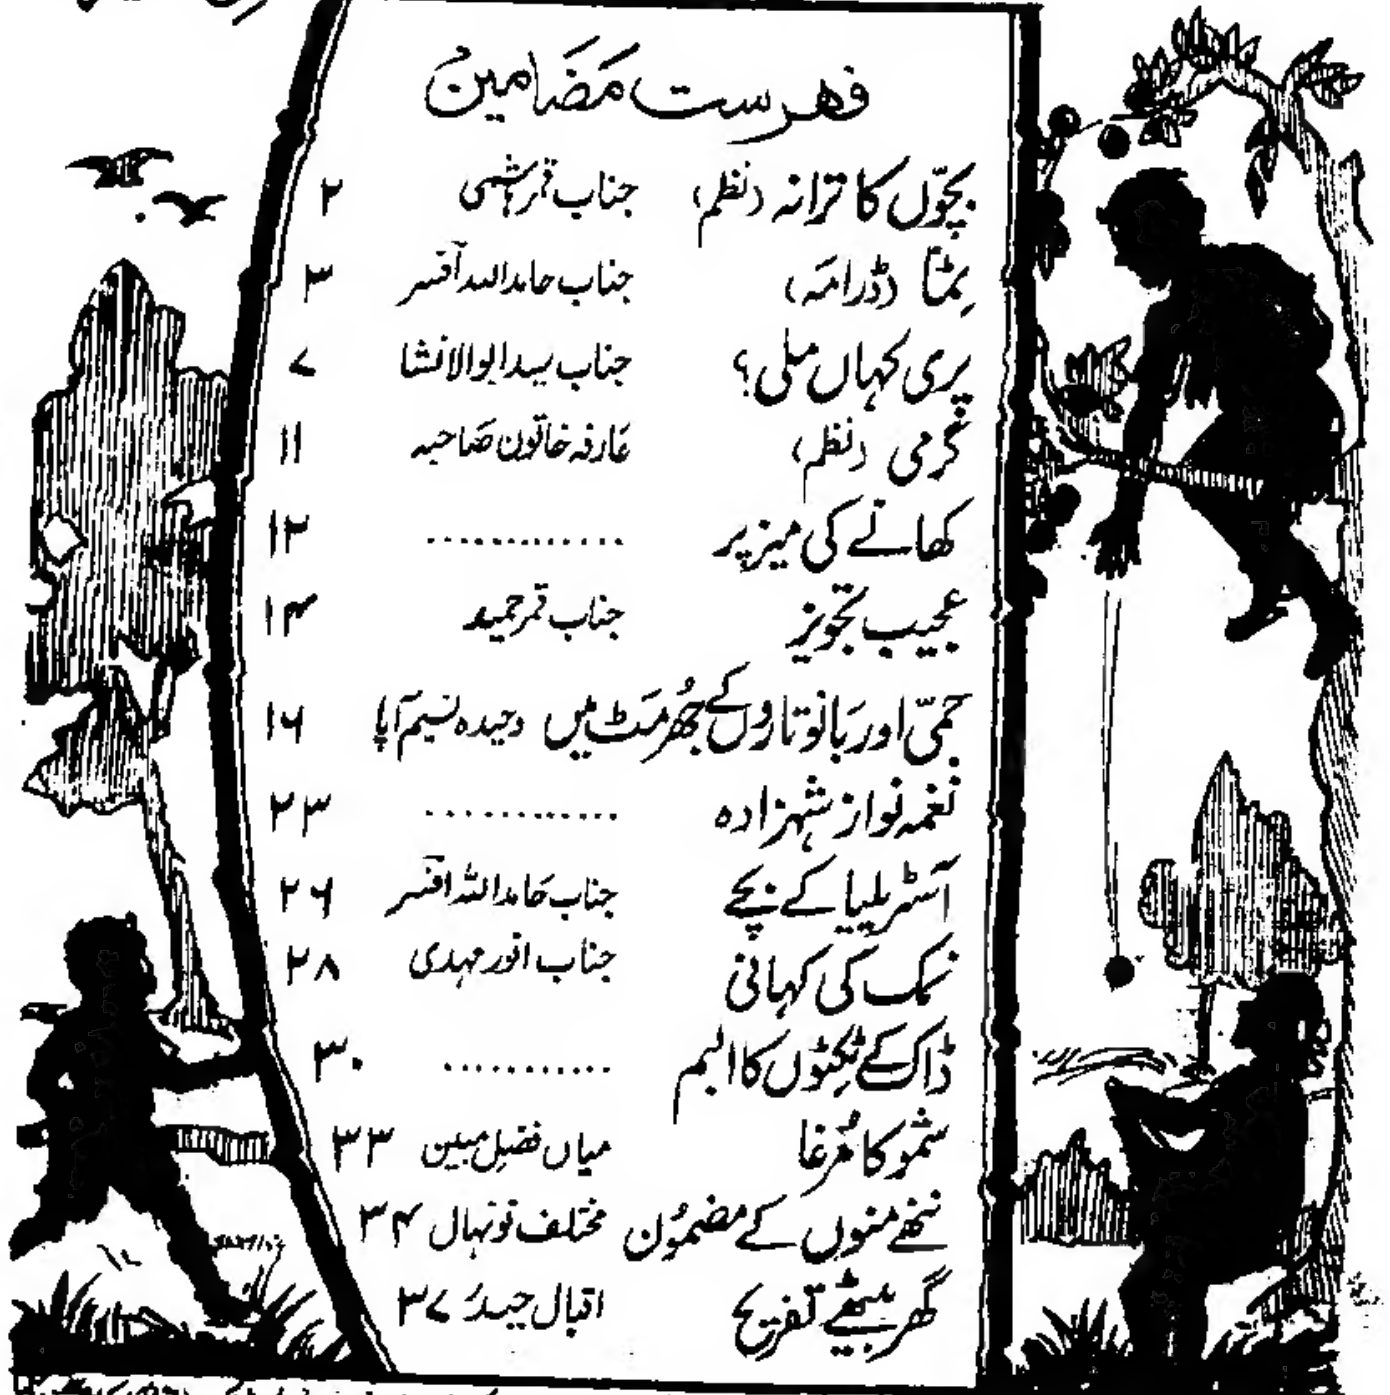 فہرست مضامین
بچّوں کا ترانہ (نظم) جناب قمر ہاشمی ۲
(ڈرامہ) جناب حامد اللہ افسر ۳
پری کہاں ملی؟ جناب سید ابوالانشا ۷
گرمی (نظم) عارفہ خاتون صاحبہ ۱۱
کھانے کی میز پر ............. ۱۲
عجیب تجویز جناب قمر حمید ۱۴
جمیّ اور بانو تاروں کے جھُرمَٹ میں وحیدہ نسیم آپا ۱۶
نغمہ نواز شہزادہ ............. ۲۳
آسٹریلیا کے بچے جناب حامد اللہ افسر ۲۶
نمک کی کہانی جناب انور مہدی ۲۸
ڈاک کے ٹکٹوں کا البم ........... ۳۰
شمو کا مُرغا میاں فضل مبین ۳۳
ننھے منوں کے مضموُن مختلف نونہال ۳۴
گھر بیٹھے تفریح اقبال حیدر ۳۷